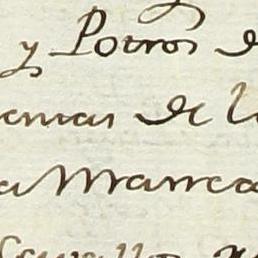 y Potros d
emas de l
a Marca